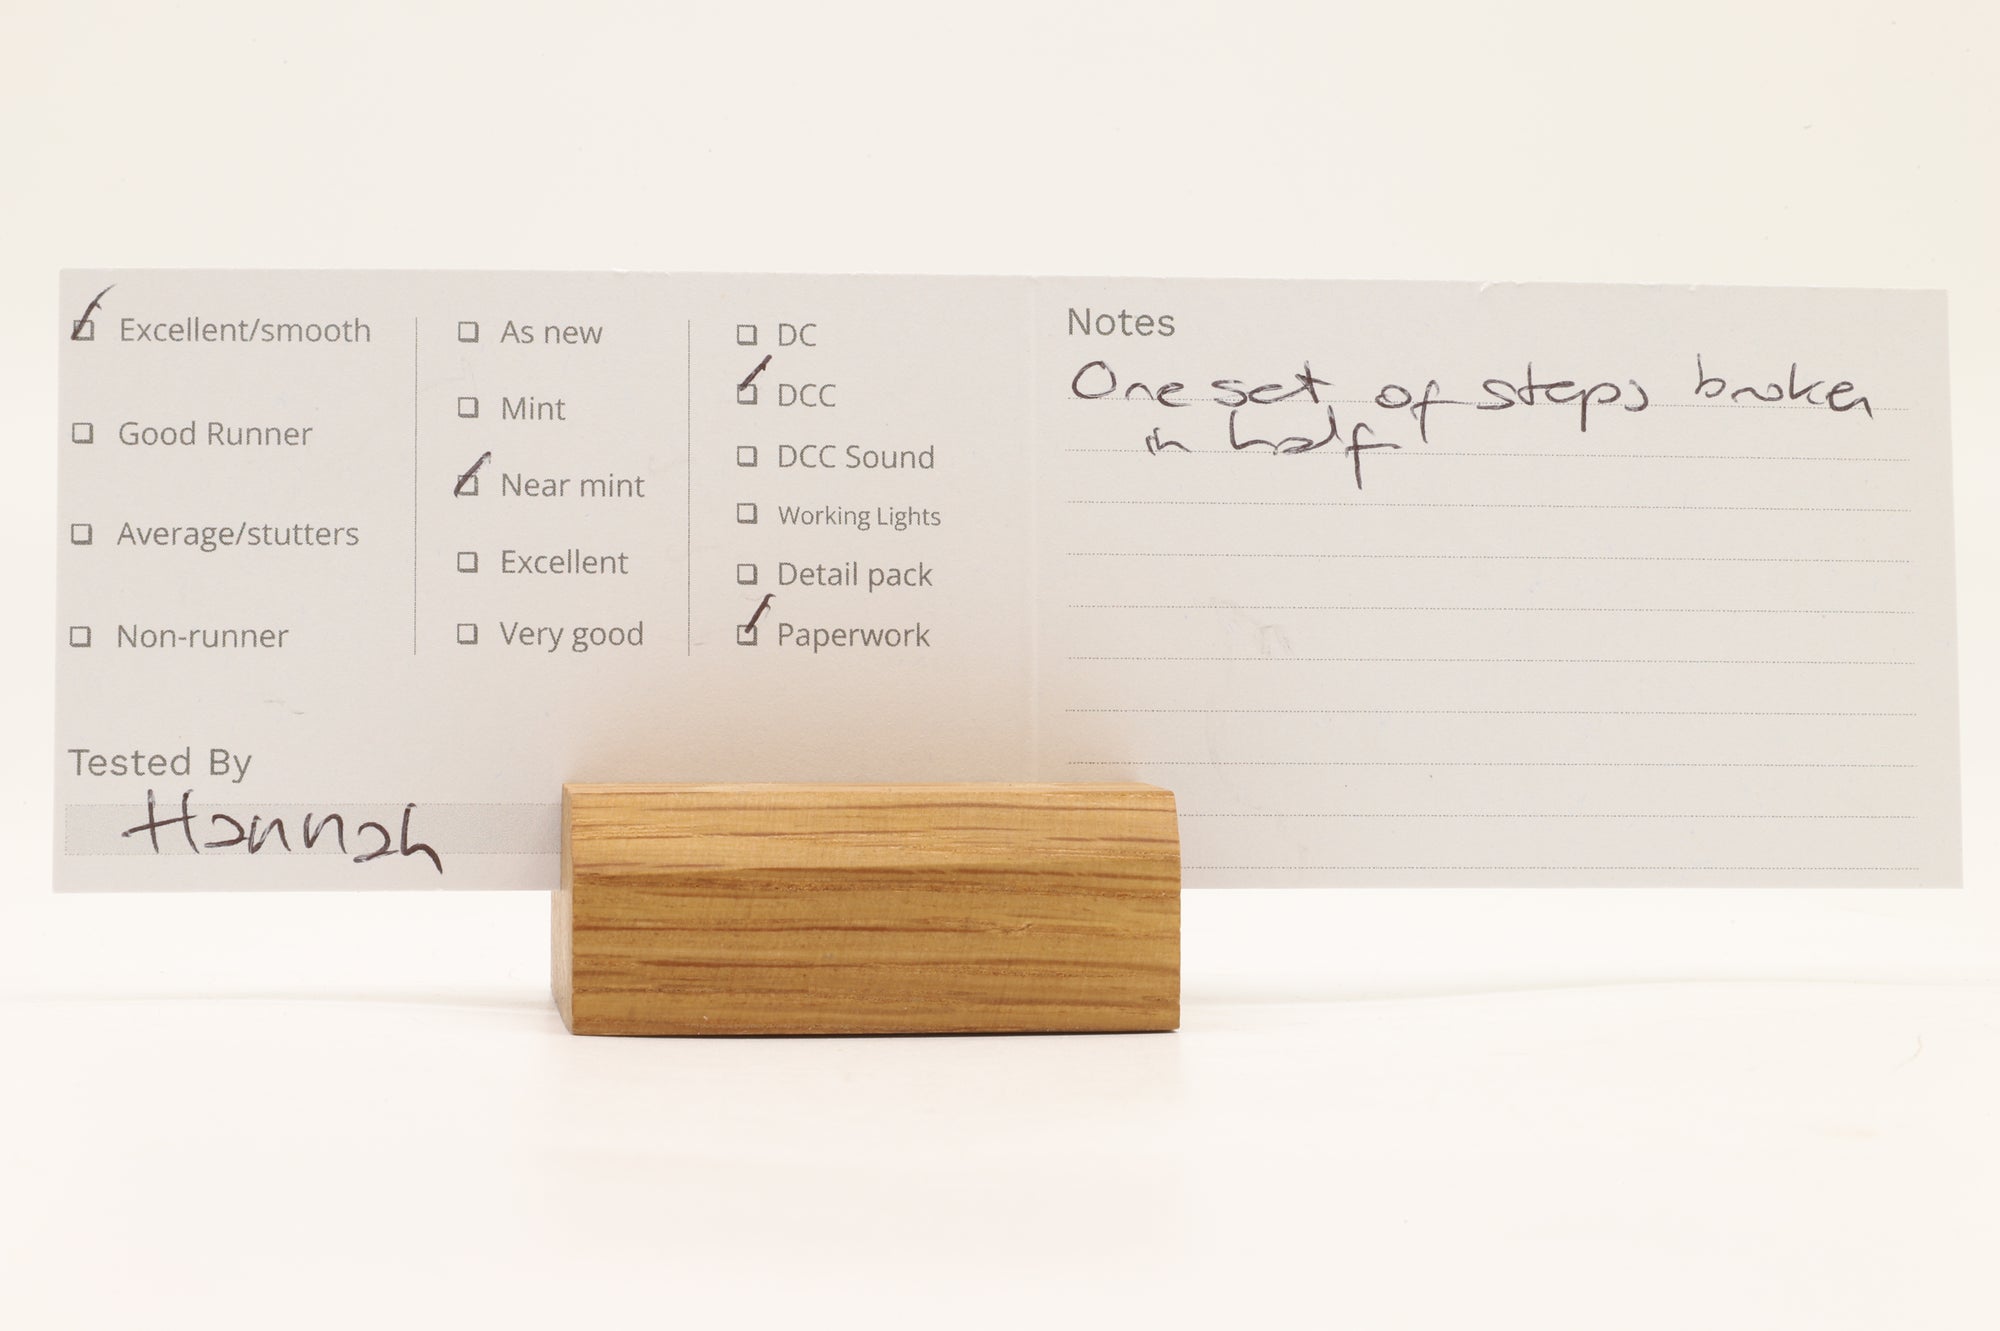 Excellent/smooth
Good Runner
Average/stutters
Non-runner
As new
Mint
Near mint
Excellent
Very good
DC
DCC
DCC Sound
Working Lights
Detail pack
Paperwork
Tested By
Hannah
Notes
One set of steps broken
in half